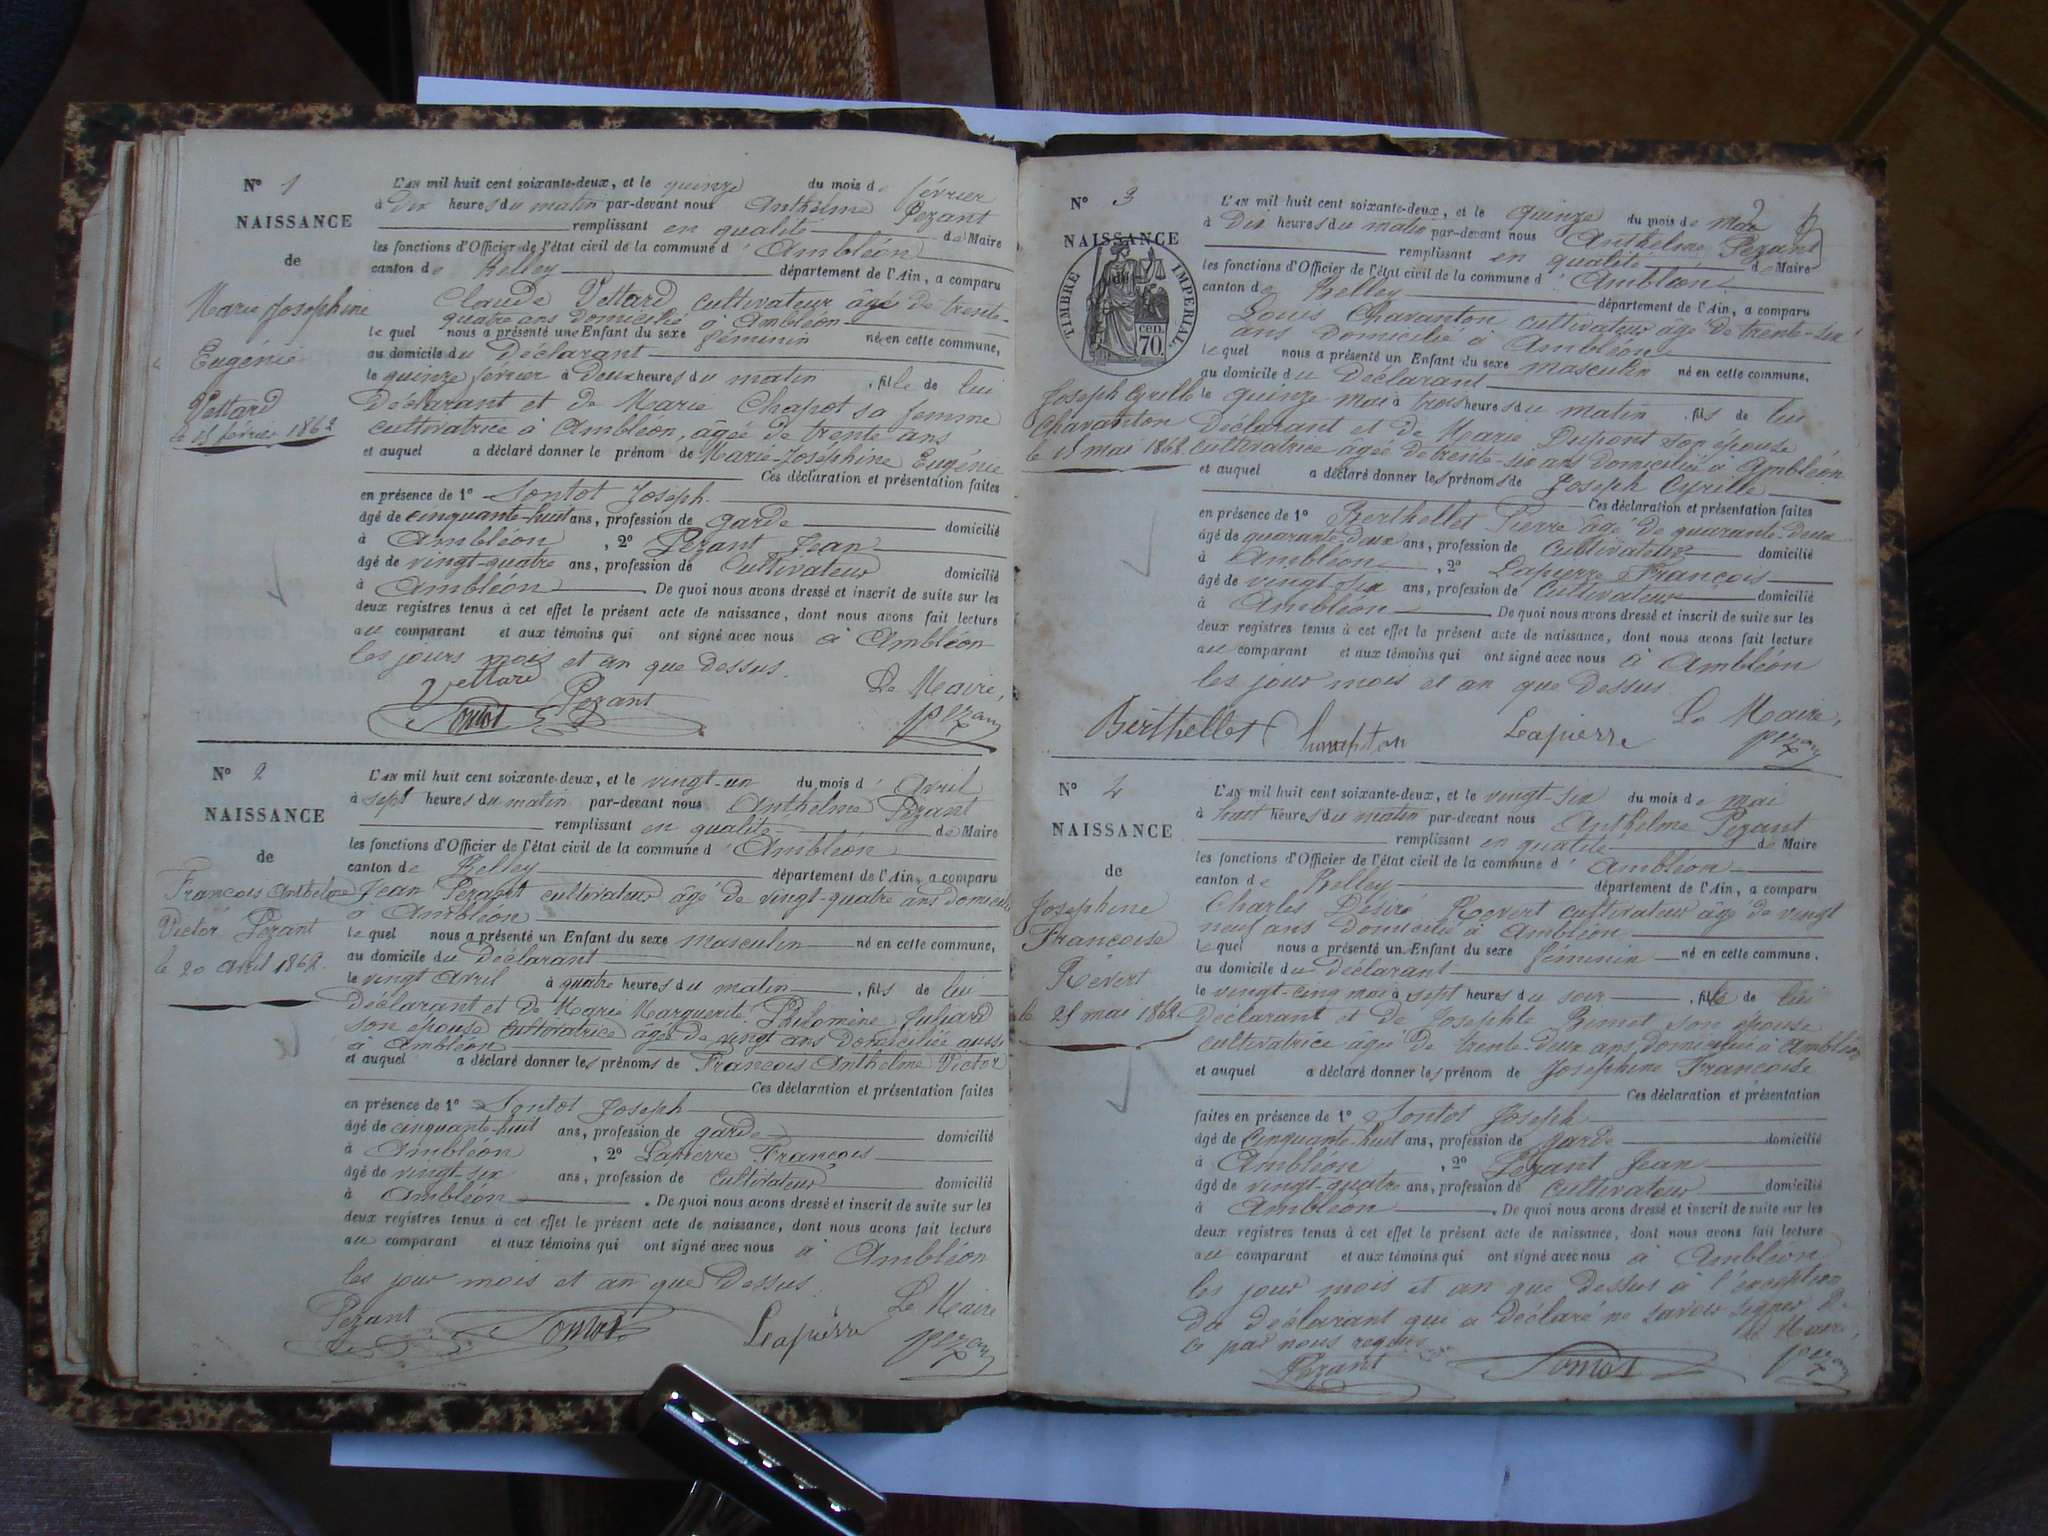 N° 1
NAISSANCE
de
Marie Joséphine
Eugénie
Vettard
le 15 février 1862
L'AN mil huit cent soixante-deux, et le quinze du mois de février
à Dix heures du matin par-devant nous Anthelme Pezant
remplissant en qualité de Maire
les fonctions d'Officier de l'état civil de la commune d'Ambléon
canton de Belley département de l'Ain, a comparu
Claude Vettard cultivateur âgé de trente-
quatre ans domicilié à Ambléon
le quel nous a présenté une Enfant du sexe féminin né en cette commune,
au domicile du Déclarant
le quinze février à Deux heures du matin, fille de lui
Déclarant et de Marie Chapot sa femme
cultivatrice à Ambléon, âgée de trente ans
et auquel a déclaré donner le prénom de Marie-Joséphine Eugénie
Ces déclaration et présentation faites
en présence de 1° Sontot Joseph
âgé de cinquante-huit ans, profession de garde domicilié
à Ambléon, 2° Pezant Jean
âgé de vingt-quatre ans, profession de Cultivateur domicilié
à Ambléon De quoi nous avons dressé et inscrit de suite sur les
deux registres tenus à cet effet le présent acte de naissance, dont nous avons fait lecture
au comparant et aux témoins qui ont signé avec nous à Ambléon
les jours mois et an que dessus.
Vettard Pezant Le Maire,
Sontot Pezant
N° 2
NAISSANCE
de
François Anthelme
Victor Pezant
le 20 avril 1862.
L'AN mil huit cent soixante-deux, et le vingt-un du mois d'Avril
à sept heures du matin par-devant nous Anthelme Pezant
remplissant en qualité de Maire
les fonctions d'Officier de l'état civil de la commune d'Ambléon
canton de Belley département de l'Ain, a comparu
Jean Pezant cultivateur âgé de vingt-quatre ans domicilié
à Ambléon
le quel nous a présenté un Enfant du sexe masculin né en cette commune,
au domicile du Déclarant
le vingt Avril à quatre heures du matin, fils de lui
Déclarant et de Marie Marguerite Philomène Juliard
son épouse cultivatrice âgée de vingt ans domiciliée aussi
à Ambléon
et auquel a déclaré donner les prénoms de François Anthelme Victor
Ces déclaration et présentation faites
en présence de 1° Sontot Joseph
âgé de cinquante-huit ans, profession de garde domicilié
à Ambléon, 2° Lapierre François
âgé de vingt-six ans, profession de Cultivateur domicilié
à Ambléon. De quoi nous avons dressé et inscrit de suite sur les
deux registres tenus à cet effet le présent acte de naissance, dont nous avons fait lecture
au comparant et aux témoins qui ont signé avec nous à Ambléon
les jour mois et an que Dessus.
Le Maire
Pezant Sontot Lapierre Pezant
N° 3
NAISSANCE
de
TIMBRE IMPERIAL
CEN. 70
Joseph Cyrille
Chavanton
le 15 mai 1862.
L'AN mil huit cent soixante-deux, et le quinze du mois de mai
à Dix heures du matin par-devant nous Anthelme Pezant
remplissant en qualité de Maire
les fonctions d'Officier de l'état civil de la commune d'Ambléon
canton de Belley département de l'Ain, a comparu
Louis Chavanton cultivateur âgé de trente-six
ans domicilié à Ambléon
le quel nous a présenté un Enfant du sexe masculin né en cette commune,
au domicile du Déclarant
le quinze mai à trois heures du matin, fils de lui
Déclarant et de Marie Dupont son épouse
cultivatrice âgée de trente-six ans domiciliée à Ambléon
et auquel a déclaré donner les prénoms de Joseph Cyrille
Ces déclaration et présentation faites
en présence de 1° Berthellet Pierre âgé de quarante-deux
âgé de quarante-deux ans, profession de Cultivateur domicilié
à Ambléon, 2° Lapierre François
âgé de vingt-six ans, profession de Cultivateur domicilié
à Ambléon De quoi nous avons dressé et inscrit de suite sur les
deux registres tenus à cet effet le présent acte de naissance, dont nous avons fait lecture
au comparant et aux témoins qui ont signé avec nous à Ambléon
les jour mois et an que Dessus.
Le Maire,
Berthellet Lapierre Pezant
N° 4
NAISSANCE
de
Joséphine
Françoise
Révert
le 25 mai 1862
L'AN mil huit cent soixante-deux, et le vingt-six du mois de mai
à huit heures du matin par-devant nous Anthelme Pezant
remplissant en qualité de Maire
les fonctions d'Officier de l'état civil de la commune d'Ambléon
canton de Belley département de l'Ain, a comparu
Charles Désiré Révert cultivateur âgé de vingt
neuf ans domicilié à Ambléon
le quel nous a présenté un Enfant du sexe féminin né en cette commune,
au domicile du Déclarant
le vingt-cinq mai à sept heures du soir, fille de lui
Déclarant et de Josephte Bimet son épouse
cultivatrice âgée de trente-deux ans domiciliée à Ambléon
et auquel a déclaré donner les prénom de Joséphine Françoise
Ces déclaration et présentation
faites en présence de 1° Sontot Joseph
âgé de Cinquante-huit ans, profession de garde domicilié
à Ambléon, 2° Pezant Jean
âgé de vingt-quatre ans, profession de Cultivateur domicilié
à Ambléon. De quoi nous avons dressé et inscrit de suite sur les
deux registres tenus à cet effet le présent acte de naissance, dont nous avons fait lecture
au comparant et aux témoins qui ont signé avec nous à Ambléon
les jour mois et an que dessus à l'exception
du déclarant qui a déclaré ne savoir signer de
ce par nous requis. Le Maire,
Pezant Sontot Pezant